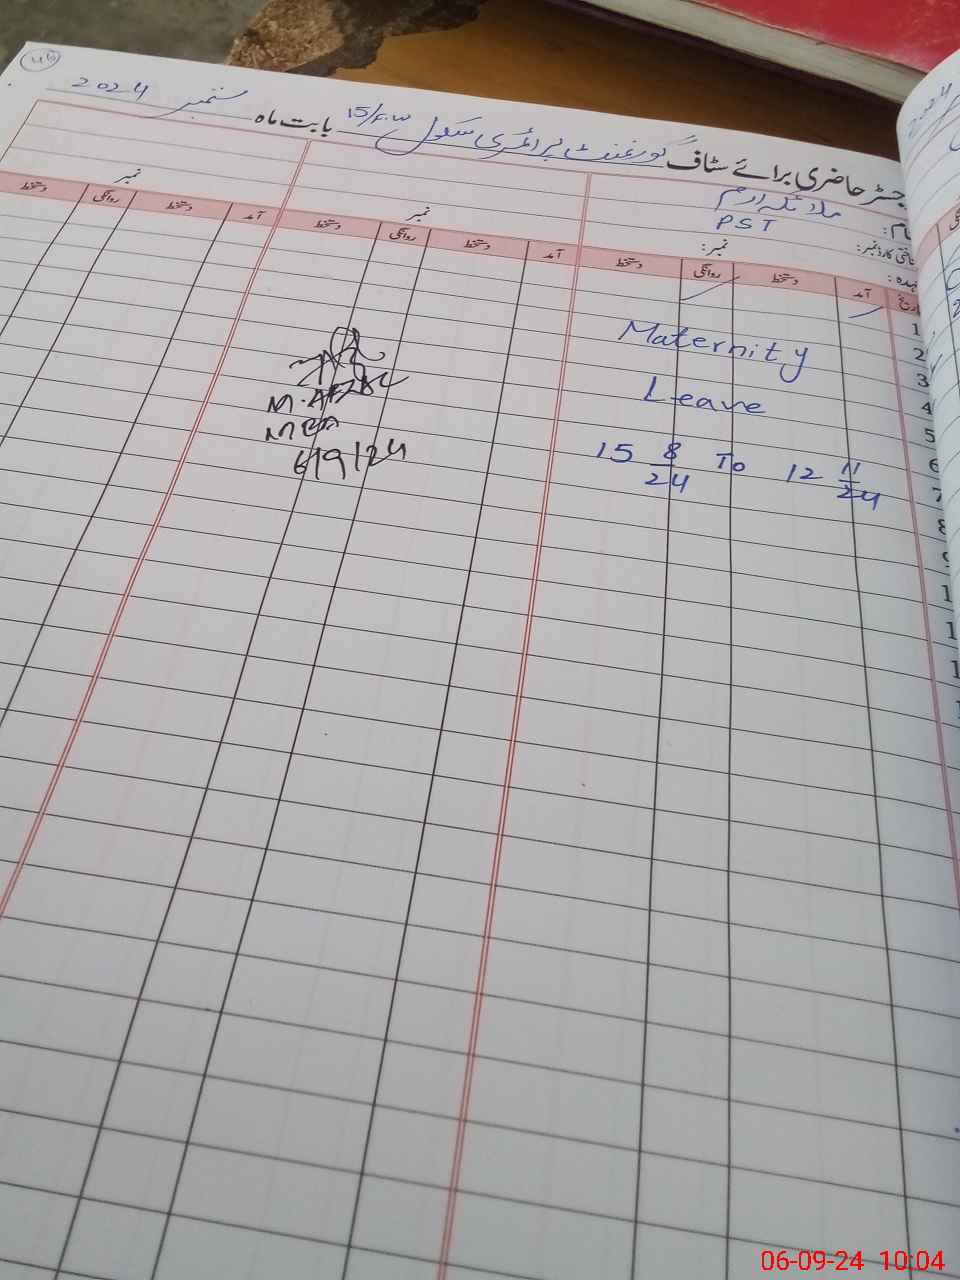 جسٹر حاضری برائے سٹاف گورنمنٹ پرائمری سکول 15/F.W بابت ماہ ستمبر 2024
46
نام: ملائکہ ارم
PST
ختی کارڈ نمبر:
ہدہ:
نمبر:
نمبر
نمبر
تاریخ آمد دستخط روانگی دستخط آمد دستخط روانگی دستخط آمد دستخط روانگی دستخط
1
2
3
4
5
6
7
8
9
1
1
1
1
Maternity
Leave
15 8/24 To 12 11/24
M. AFZAL
MEA
6/9/24
2024
06-09-24 10:04